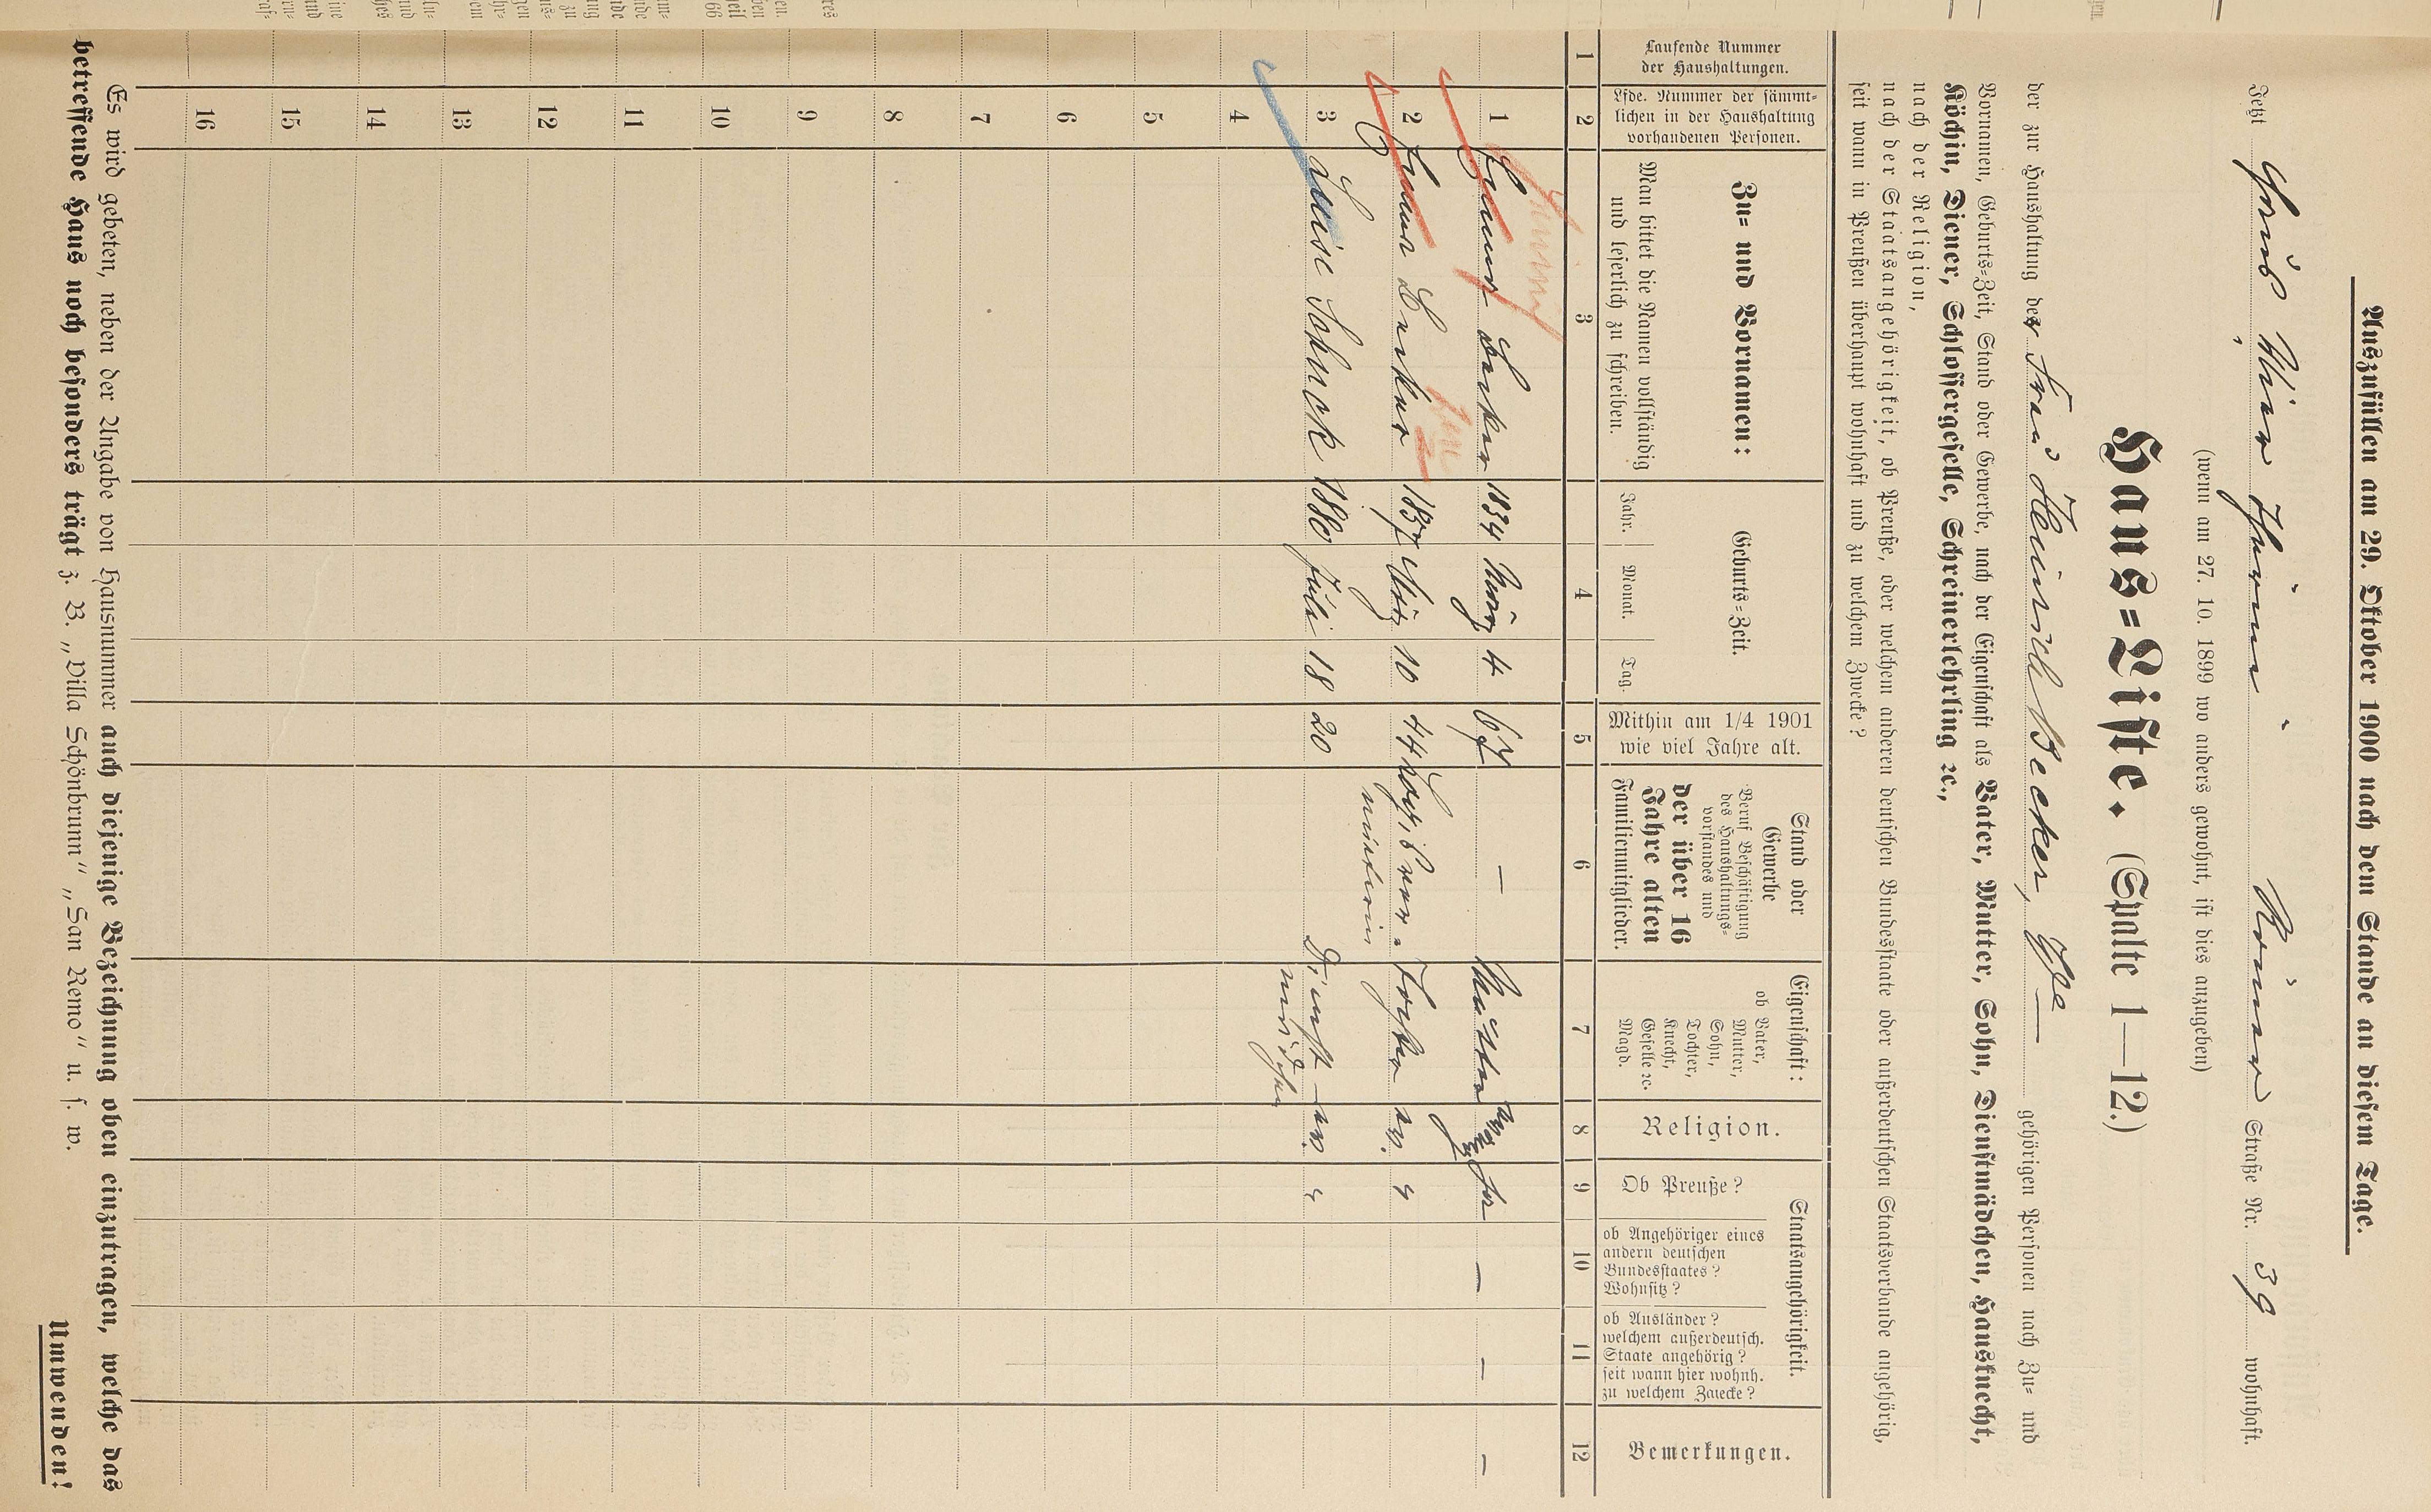 Auszufüllen am 29. Oktober 1900 nach dem Stande an diesem Tage.
Jetzt Haus Straße Nr. 39 wohnhaft.
(wenn am 27. 10. 1899 wo anders gewohnt, ist dies anzugeben)
Haus-Liste. (Spalte 1—12.)
der zur Haushaltung der Frau Heinrich Becker, gehörigen Personen nach Zu- und
Vornamen, Geburts-Zeit, Stand oder Gewerbe, nach der Eigenschaft als Vater, Mutter, Sohn, Dienstmädchen, Hausknecht,
Köchin, Diener, Schlossergeselle, Schreinerlehrling ꝛc.,
nach der Religion,
nach der Staatsangehörigkeit, ob Preuße, oder welchem anderen deutschen Bundesstaate oder außerdeutschen Staatsverbande angehörig,
seit wann in Preußen überhaupt wohnhaft und zu welchem Zwecke?
Laufende Nummer der Haushaltungen.
Lfde. Nummer der sämmt-
lichen in der Haushaltung
vorhandenen Personen.
Zu- und Vornamen:
Man bittet die Namen vollständig
und leserlich zu schreiben.
Geburts-Zeit.
Jahr. Monat. Tag.
Mithin am 1/4 1901
wie viel Jahre alt.
Stand oder
Gewerbe
Beruf Beschäftigung
des Haushaltungs-
vorstandes und
der über 16
Jahre alten
Familienmitglieder.
Eigenschaft:
ob Vater,
Mutter,
Sohn,
Tochter,
Knecht,
Geselle ꝛc.
Magd.
Religion.
Staatsangehörigkeit.
Ob Preuße?
ob Angehöriger eines
andern deutschen
Bundesstaates?
Wohnsitz?
ob Ausländer?
welchem außerdeutsch.
Staate angehörig?
seit wann hier wohnh.
zu welchem Zwecke?
Bemerkungen.
1 2 3 4 5 6 7 8 9 10 11 12
1 Becker 1834 März 4 67 — Mutter ja — — —
2 Emma Becker 1857 März 10 44 Tochter ev. "
3 Luise Schuck 1880 Juli 18 20 Dienst- ev. "
mädchen
4
5
6
7
8
9
10
11
12
13
14
15
16
Es wird gebeten, neben der Angabe von Hausnummer auch diejenige Bezeichnung oben einzutragen, welche das
betreffende Haus noch besonders trägt z. B. „Villa Schönbrunn" „San Remo" u. s. w.
Umwenden!